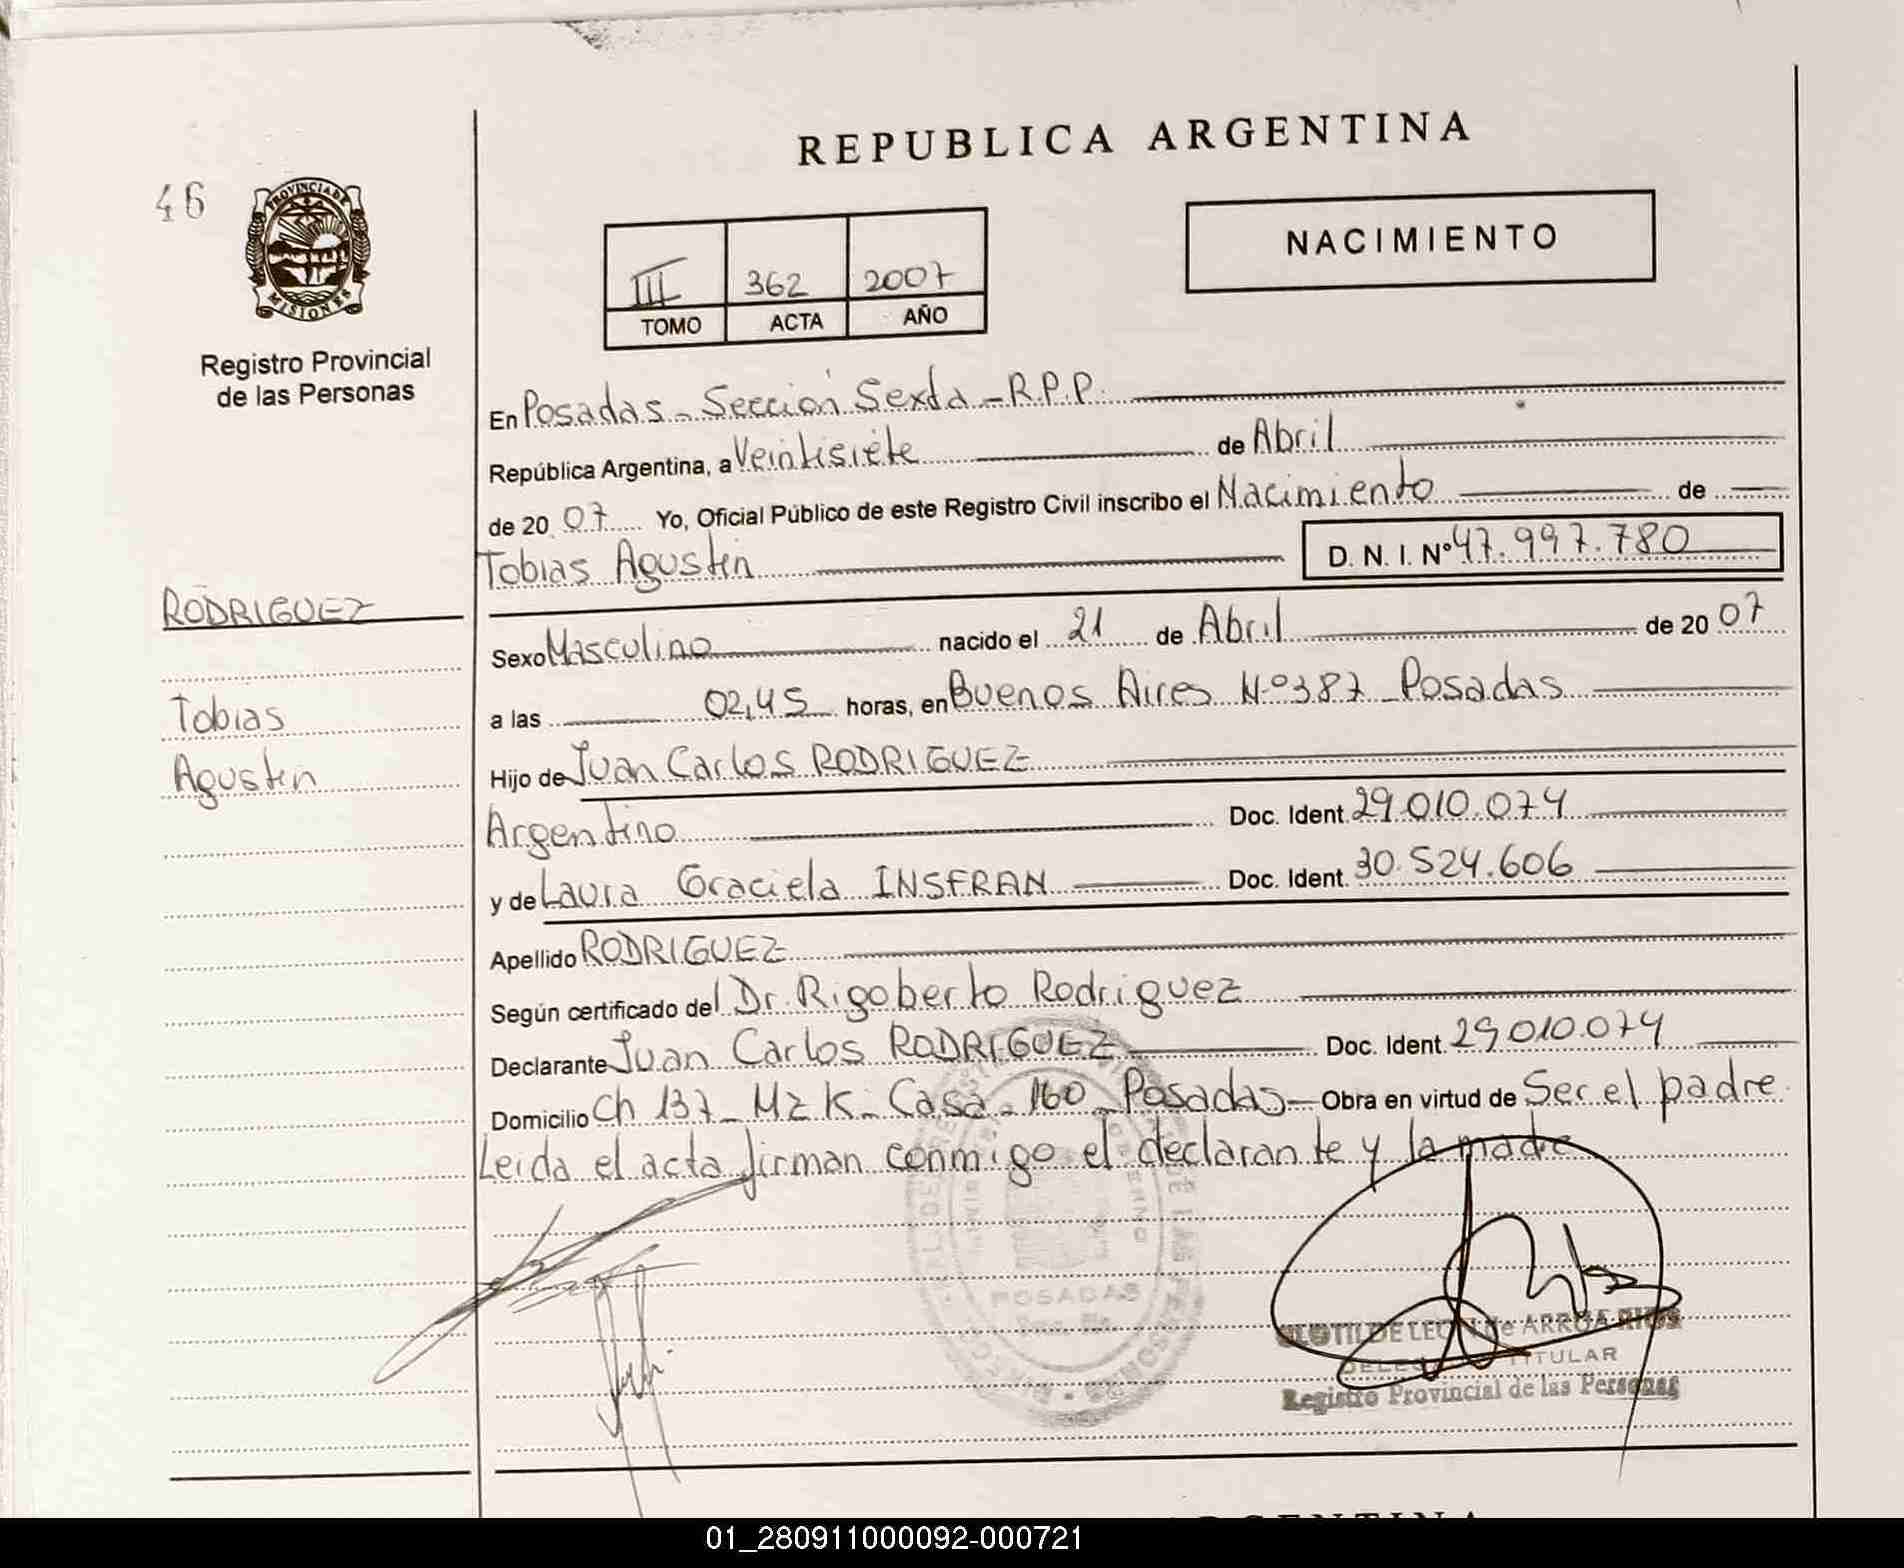 REPUBLICA ARGENTINA
46
PROVINCIA DE
MISIONES
NACIMIENTO
III 362 2007
TOMO ACTA AÑO
Registro Provincial
de las Personas
En Posadas - Sección Sexta - R.P.P.
República Argentina, a Veintisiete de Abril
de 20 07 Yo, Oficial Público de este Registro Civil inscribo el Nacimiento de
Tobias Agustin D. N. I. Nº 47.997.780
RODRIGUEZ
Sexo Masculino nacido el 21 de Abril de 20 07
Tobias
a las 02,45 horas, en Buenos Aires Nº 387 - Posadas
Agustin
Hijo de Juan Carlos RODRIGUEZ
Argentino Doc. Ident. 29.010.074
y de Laura Graciela INSFRAN Doc. Ident. 30.524.606
Apellido RODRIGUEZ
Según certificado del Dr. Rigoberto Rodriguez
Declarante Juan Carlos RODRIGUEZ Doc. Ident. 29.010.074
Domicilio Ch 137 - Mz K - Casa - 160 - Posadas - Obra en virtud de Ser el padre
Leida el acta firman conmigo el declarante y la madre
POSADAS
CLOTILDE LEON de ARROA RIOS
TITULAR
Registro Provincial de las Personas
01_280911000092-000721